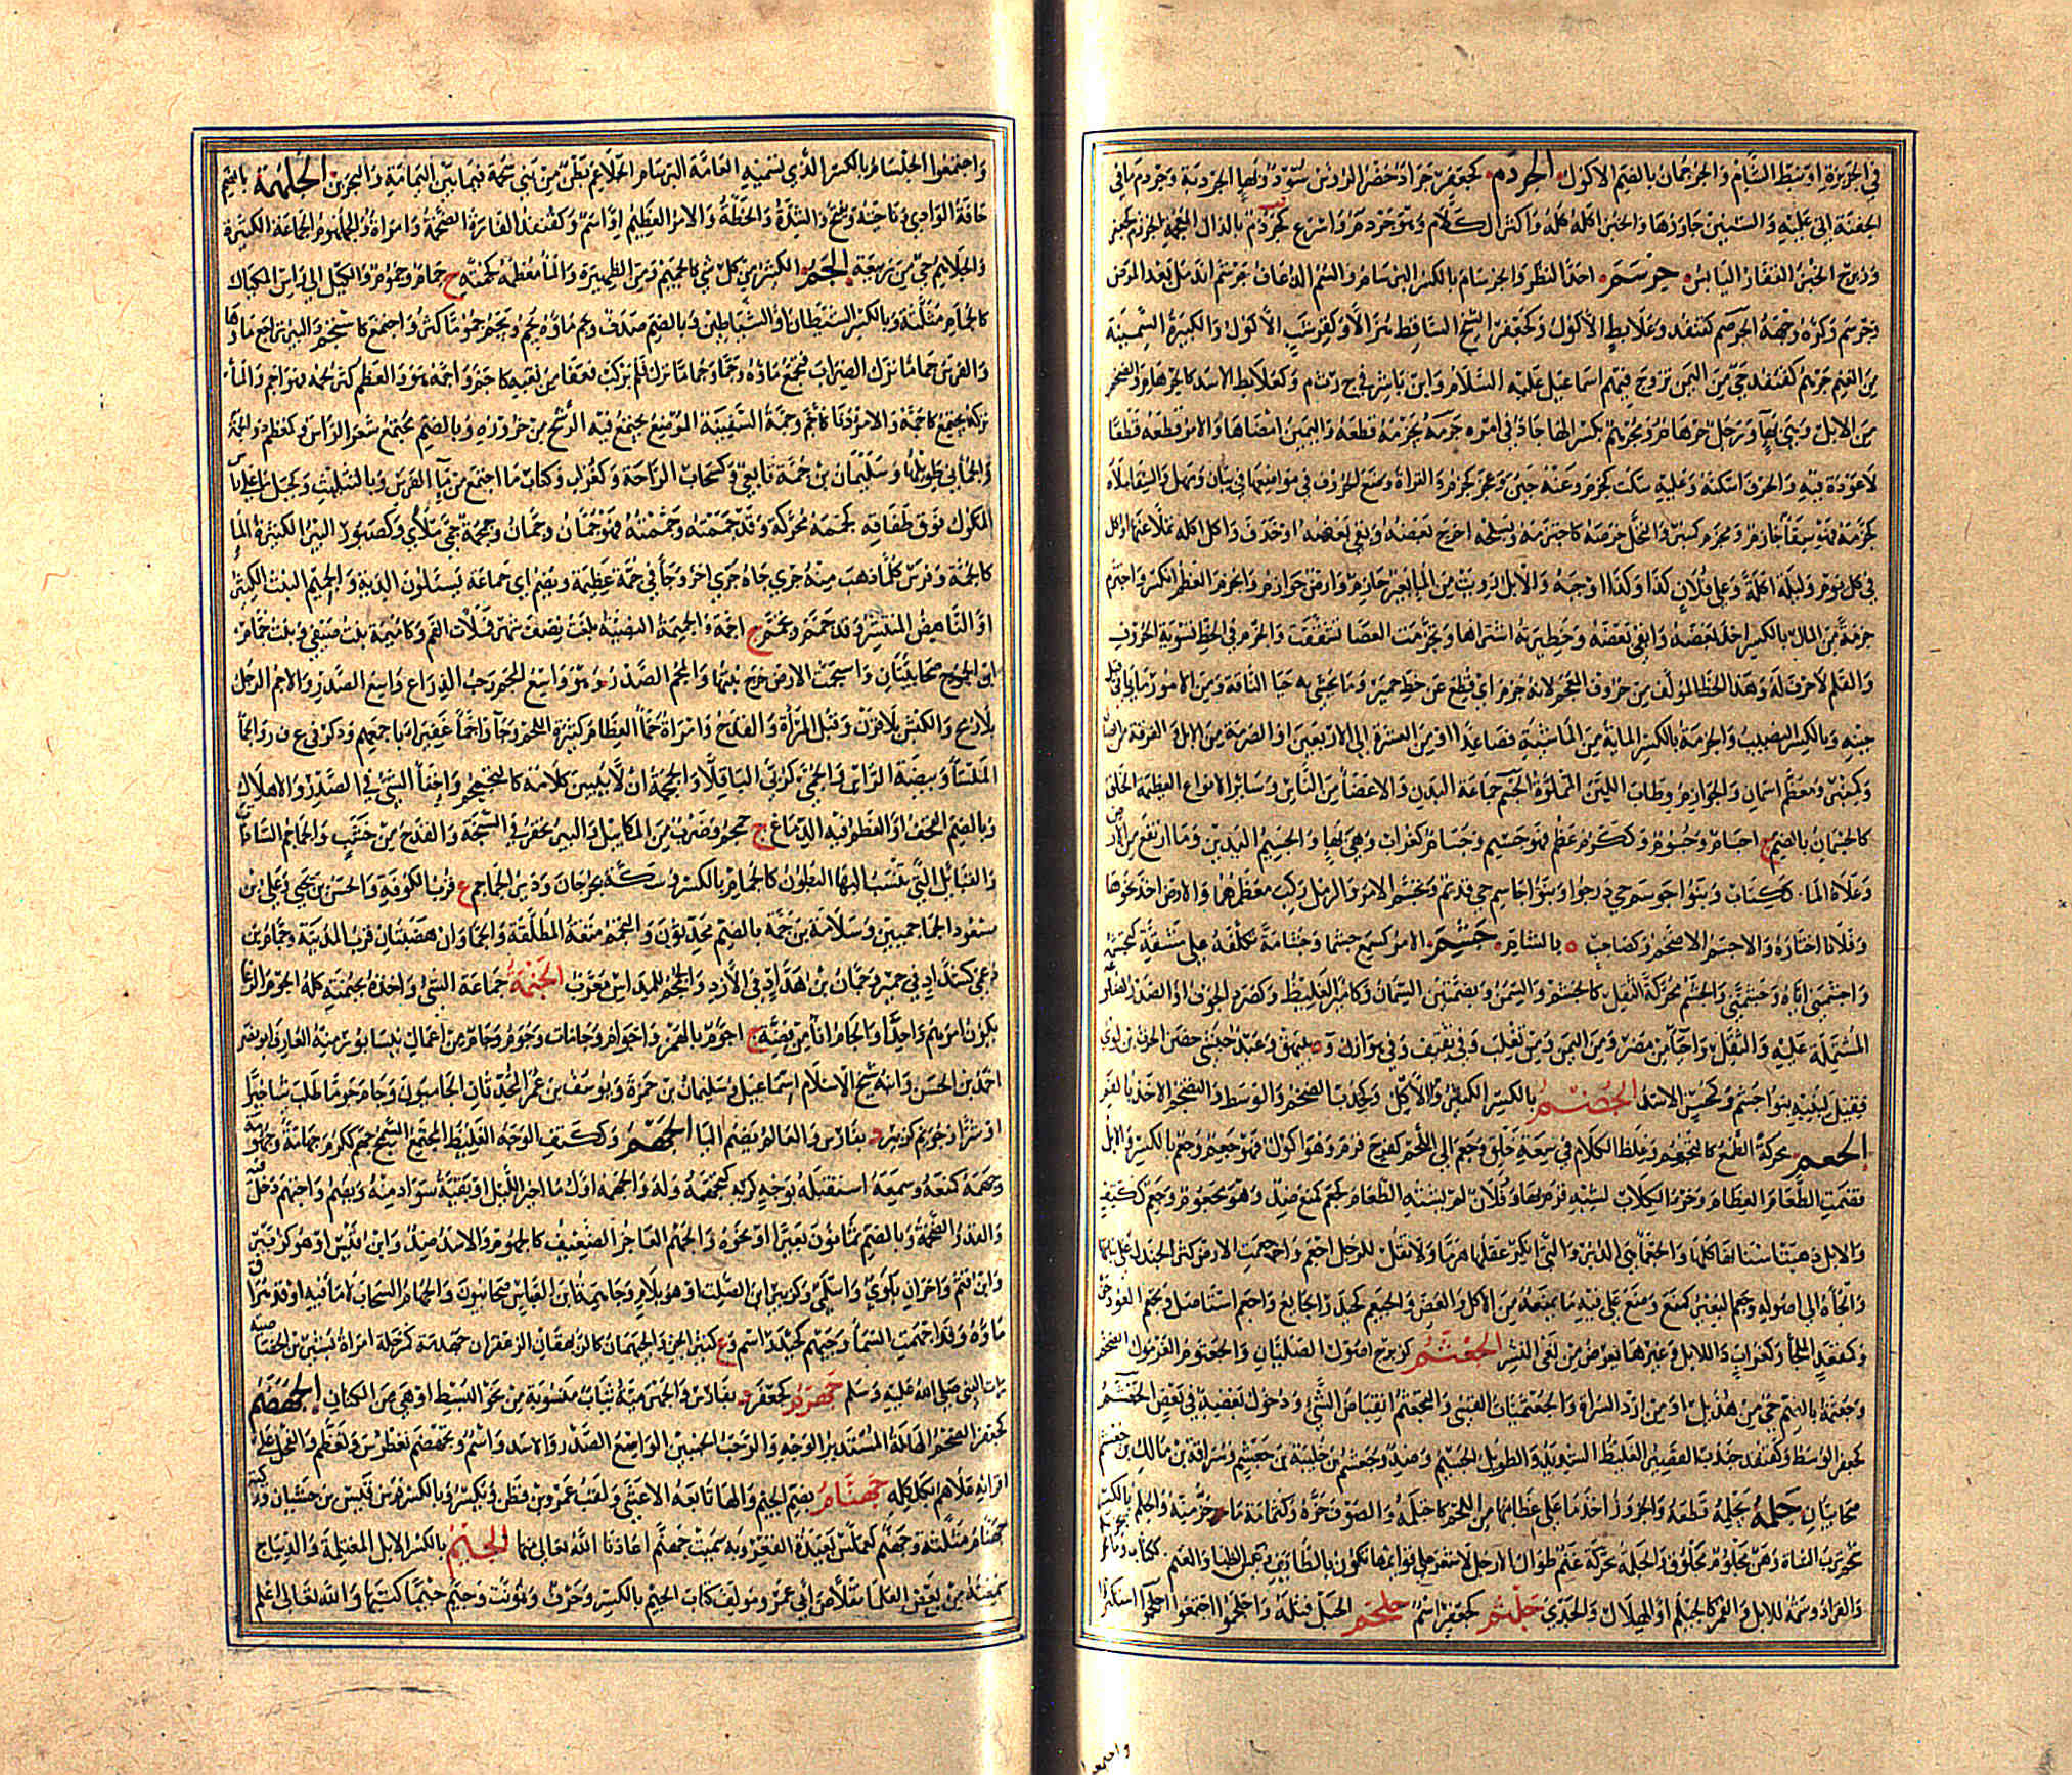 في الجزيرة اوسط الشام والجرثمان بالضم الاكول الجردم كجعفر جراد خضر الرؤس سود ولها الجردمة وجردم ما في
الجفنة اتى عليه والستين جاوزها والخبز اكله كله واكثر الكلام وهو جردم واسرع كجرذم بالذال المعجمة الجرزم كجعفر
وزبرج الخبز القفار اليابس جرسم احد النظر والجرسام بالكسر البرسام والسم الذعاف جرشم اندمل بعد المرض
وجرسم وكره وجهه الجرضم كقنفذ وعلابط الاكول وكجعفر الشيخ الساقط هزالا وكقرشب الاكول والكبيرة السمينة
من الغنم جرهم كقنفذ حي من اليمن تزوج فيهم اسماعيل عليه السلام وابن ياسر في ج ر ث م وكعلابط الاسد كالجرهام والضخم
من الابل وهي بهاء ورجل جرهام ومجرهم بكسر الهاء جاد في امره جزمه يجزمه قطعه واليمين امضاها والامر قطعه قطعا
لا عودة فيه والحرف اسكنه وعليه سكت كجزم وعنه جبن وعجز كجزم والقراءة وضع الحروف في مواضعها في بيان ومهل والسقاء ملاه
كجزمه فهو سقاء جازم ومجزم كمنبر والنخل خرصه كاجتزمه وبسلحه اخرج بعضه وبقي بعضه او خذف واكل اكلة تملا عنها او اكل
في كل يوم وليلة اكلة وعلى فلان كذا وكذا اوجبه والابل رويت من الماء بعير جازم وارض جوازم والجزم القطا الكسر واجتزم
جزمة من المال بالكسر اخذ بعضه وابقى بعضه وحظيرته اشتراها وتجزمت العصا تشققت والجزم في الخط تسوية الحروف
والقلم لا حرف له وهذا الخط المؤلف من حروف المعجم لانه جزم اي قطع عن خط حمير وما يحشى به حيا الناقة ومن الامور ما ياتي قبل
حينه وبالكسر النصيب والجزمة بالكسر الماية من الماشية فصاعدا او من العشرة الى الاربعين او الصرمة من الابل والفرقة من الضان
وكمنبر ومعظم اسمان والجوازم وطاب اللبن المملوة الجسم جماعة البدن والاعضا من الناس وسائر الانواع العظيمة الخلق
كالجثمان بالضم ج اجسام وجسوم وككرم عظم فهو جسيم وجسام كغراب وهي بهاء والجسيم البدين وما ارتفع من الارض
وعلاه الماء ككتاب وبنوا جوسم حي درجوا وبنوا جاسم حي قديم وتجسم الامر والرمل ركب معظمهما والارض اخذ نحوها
وفلانا اختاره والاجسم الاضخم وكصاحب ه بالشام جشم الامر كسمع جشما وجشامة تكلفه على مشقة كتجشمه
واجشمني اياه وجشمني والجشم محركة الثقل كالجشم والسمن وبضمتين السمان وكامير الغليظ وكصرد الجوف او الصدر
المشتملة عليه والثقل واحياء من مضر ومن اليمن ومن تغلب وفي ثقيف وفي هوازن وه ببيهق وعبد حبشي حضن الحرث بن لوي
فقيل لبنيه بنوا جشم وكمحسن الاسد الجضم بالكسر الكثير الاكل وكجندب الضخم والوسط والتجضم الاخذ بالفم
الجعم محركة الطمع كالتجعم وغلظ الكلام في سعة حلق وجعم الى اللحم كفرح قرم وهو اكول فهو جعم وجعم بالكسر والابل
قضمت الطعام العظام وخرء الكلاب لشبه قرم بها وفلان لم يشته الطعام كجعم كمنع ضد وهو مجعوم وجعم ككتف
والابل ذهبت اسنانها كلها والجعماء هي الدبر والتي انكر عقلها هرما ولا تقل للرجل اجعم واجعمت الارض كثر الحنك على نباتها
والجاه الى اصوله وجعم البعير كمنع وضع على فيه ما يمنعه من الاكل والعض والجيعم كحيدر الجايع واجعم استاصل وتجعم العود حن
وكقعد الملجا وكغراب داء للابل وغيرها يعرض من لعق النشر الجعثم كزبرج اصول الصليان والجعثوم الغرمول الضخم
وجعثمة بالضم حي من هذيل او من ازد السراة والجعثميات القسي والتجعثم انقباض الشيء ودخول بعضه في بعض الجعشم
كجعفر الوسط وكقنفذ وجندب القصير الغليظ الشديد والطويل الجسيم وضد وجعشم بن خليبة بن جعشم وسراقة بن مالك بن جعشم
صحابيان جلمه يجلمه قطعه والجزور اخذ ما على عظامها من اللحم كاجتلمه والصوف جزه وكثمامة ما جز منه والجلم بالكسر
شحم ترب الشاة وهن مجلوم محلوق والجلم محركة غنم طوال الارجل لا شعر على قوائمها تكون بالطائف وتيس الظباء والغنم ككتاب
والقراد وسمة للابل والقمر كالجيلم او الهلال والجدي جلثم كجعفر اسم جلحم الحبل فتله واجلحموا اجتمعوا اجلخموا استكبروا
واجتمعوا
واجتمعوا الجلسام بالكسر الذي تسميه العامة البرسام الجلاعم بطن من بني سحمة فيما بين اليمامة والبحرين الجلهمة بالضم
حافة الوادي وناحيته ويفتح والشدة والخطة والامر العظيم واسم وكقنفذ الفارة الضخمة وامراة والجلهوم الجماعة الكثيرة
والجلاهم حي من ربيعة الجم الكثير من كل شيء كالجميم ومن الظهيرة والماء معظمه كجمته ج جمام وجموم والكيل الى راس المكيال
كالجمام مثلثة وبالكسر الشيطان او الشياطين وبالضم صدف وجم ماؤه يجم ويجم جموما كثر واجتمع كاستجم والبير تراجع ماؤها
والفرس جماما ترك الضراب فتجمع ماؤه وجما وجماما ترك فلم يركب فعفا من تعبه كاجم واجمه هو والعظم كثر لحمه فهو اجم والماء
تركه يجتمع كاجمه والامر دنا كاجم وجمة السفينة الموضع يجتمع فيه الرشح من خروزه وبالضم مجتمع شعر الراس وكمعظم ذو الجمة
والجماني طويلها وسليمان بن جمة تابعي وكسحاب الراحة وكغراب وكتاب ما اجتمع من ماء الفرس وبالتثليث وكجبل ما على راس
المكوك فوق طفافه كجممه محركة وقد جممته وجممته فهو جمان وجمان وجمجمة جمى ملاى وكصبور البير الكثيرة الماء
كالجمة وفرس كلما ذهب منه جري جاه جري اخر وجاء في جمة عظيمة ويضم اي جماعة يسئلون الدية والجميم النبت الكثير
او الناهض المنتشر وقد جمم وتجمم ج اجمة والجميمة النصية بلغت نصف شهر فملات الفم وكامية بنت صيفي وبنت حمام
ابن الجموح صحابيتان واستجمت الارض خرج نبتها والجم الصدر وهو واسع المجم رحب الذراع واسع الصدر والاجم الرجل
بلا رمح والكبش بلا قرن وقبل المراة والقدح وامراة جماء العظام كثيرة اللحم وجاؤا جماء غفيرا باجمعهم وذكر في غ ف ر والجماء
الملساء وبيضة الراس والجمى كربى الباقلا والجمجمة ان لا يبين كلامه كالتجمجم واخفاء الشيء في الصدر والاهلاك
وبالضم القحف او العظم فيه الدماغ ج جمجم وضرب من المكاييل والبير تحفر في السبخة والقدح من خشب والجماجم السادات
والقبائل التي تنسب اليها البطون كالجمام بالكسر وسكة بجرجان ودير الجماجم ع قرب الكوفة والحسن بن يحيى وعلي بن
مسعود الجماجميين وسلامة بن جمة بالضم محدثون والتجمم متعة المطلقة والجماوان هضبتان قرب المدينة وجمام بن
دعمي كشداد في حمير وجمان بن هداد في الازد والجمجم للمداس معرب الجنمة جماعة الشيء واخذه بجنمته كله الجوم الرعاء
يكون امرهم واحدا والجام اناء من فضة ج اجؤم بالهمز واجوام وجامات وجوم وجام من اعمال نيسابور منه العارف ابو نصر
احمد بن الحسن وابنه شيخ الاسلام اسماعيل وسليمان بن حمزة ويوسف بن عمر المحدثان الجاميون وجام جوما طلب شيا خيرا
او شرا وجويم كزبير د بفارس والعالم بضم الباء الجهم وككتف الوجه الغليظ المجتمع السمج جهم ككرم جهامة وجهومة
وجهمه كمنعه وسمعه استقبله بوجه كريه كتجهمه وله والجهمة اول ماخير الليل او بقية سواد منه ويضم واجتهم دخل فيه
والقدر الضخمة وبالضم ثمانون بعيرا او نحوه والجهم العاجز الضعيف كالجهوم والاسد ضد وابن قيس او هو كزبير
وابن قثم واخران بلوي واسلمي وكزبير ابن الصلت او هو بلام وجاهمة ابن العباس صحابيون والجهام السحاب لا ماء فيه او قد هراق
ماؤه وقد اجهمت السماء وجيهم كحيدر اسم وع كثير الجن والجهيمان كالزهمقان الزعفران جهدمة كدحرجة امراة بشير بن الخصاصية
مات النبي صلى الله عليه وسلم جهرم كجعفر ه بفارس والجهرمية ثياب منسوبة من نحو البسط او هي من الكتان الجهضم
كجعفر الضخم الهامة المستدير الوجه والرحب الجنبين الواسع الصدر والاسد واسم وتجهضم تغطرس وتعظم والفحل على
اقرانه علاهم بكلكله جهنام بضم الجيم والهاء تابعة الاعشى ولقب عمرو بن قطن وتكسر وبالكسر فرس قيس بن حسان وركية
جهنام مثلثة وجهنم كعملس بعيدة القعر وبه سميت جهنم اعاذنا الله تعالى منها الجيم بالكسر الابل المغتلمة والديباج
سمعته من بعض العلما نقلا عن ابي عمرو مولف كتاب الجيم بالكسر وحرف وتونث وجيم جيما كتبها والله تعالى اعلم